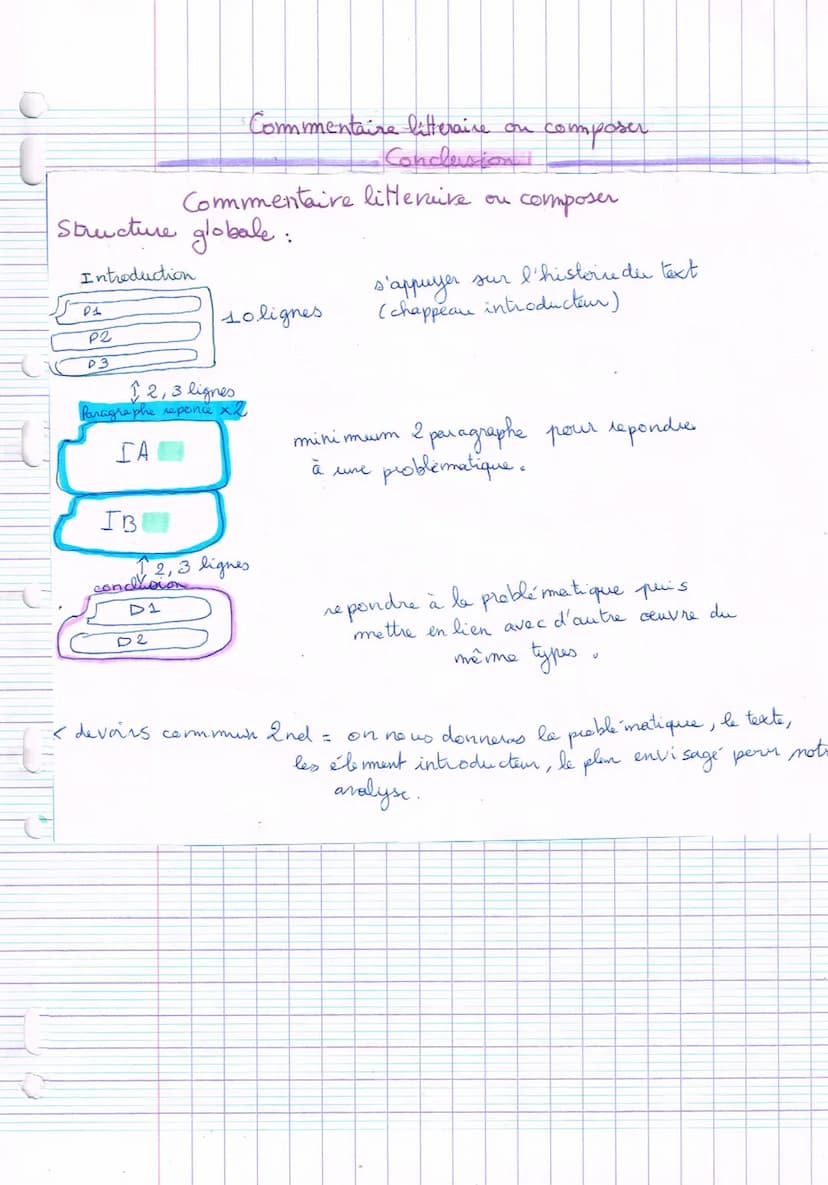 Commentaire litteraire ou composer
Conclusion
Commentaire litteraire ou composer
Structure globale :
Introduction
P1
P2
P3
10 lignes
s'appuyer sur l'histoire du text
(chappeau introducteur)
2, 3 lignes
Paragraphe reponce x2
IA
minimum 2 paragraphe pour repondre
à une problématique.
IB
2, 3 lignes
conclusion
D1
D2
repondre à la problématique puis
mettre en lien avec d'autre œuvre du
même types.
< devoirs commun 2nd = on nous donneras la problématique, le texte,
les élement introducteur, le plan envisagé pour notr
analyse.